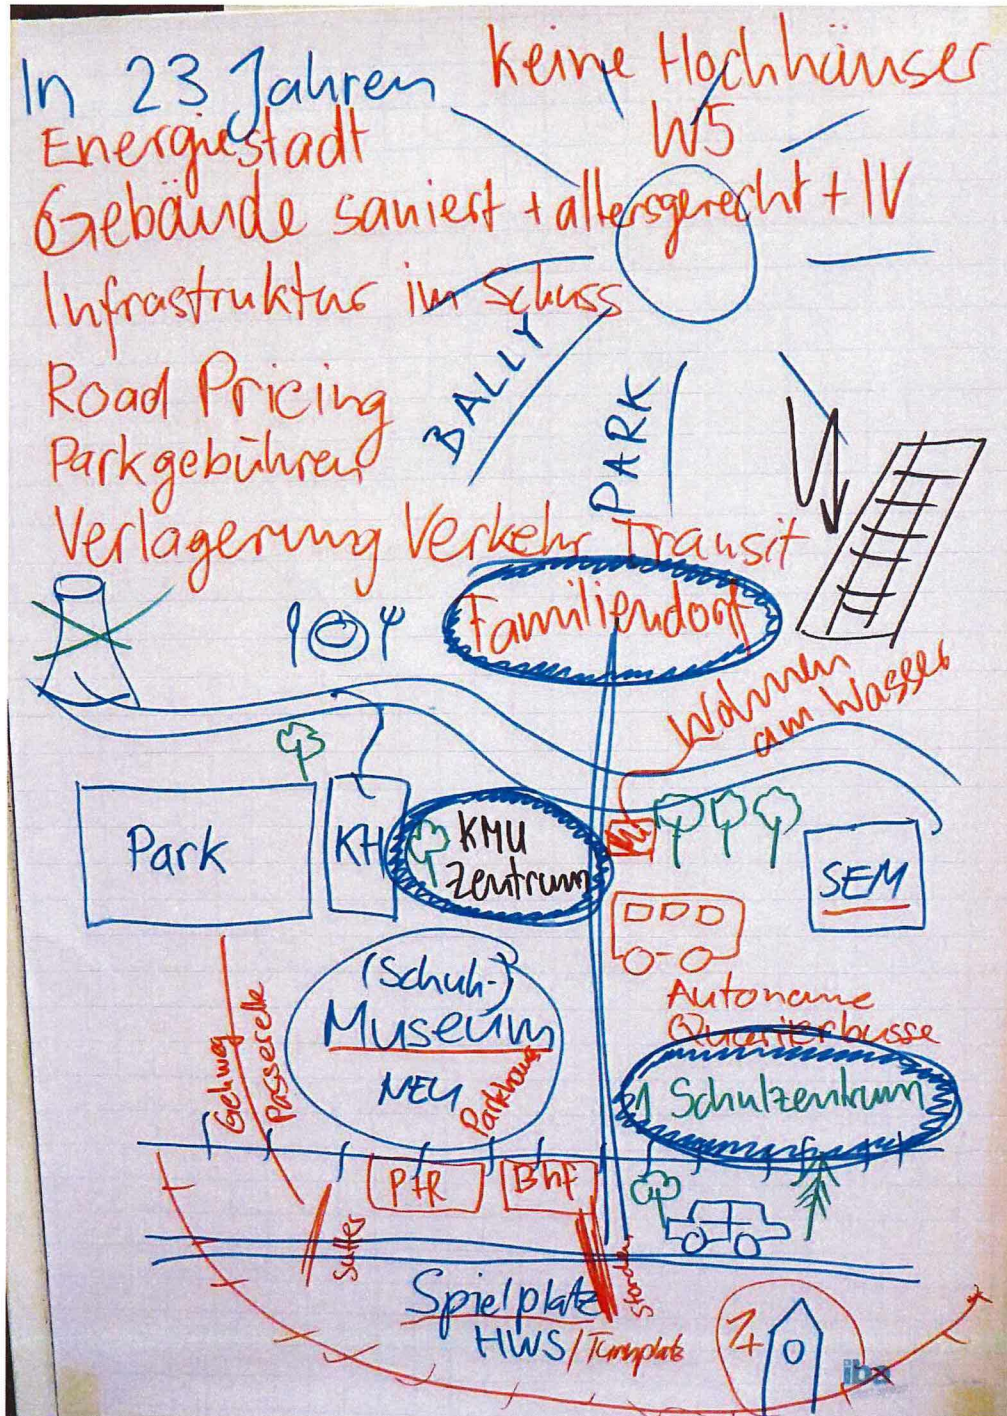 In 23 Jahren
Keine Hochhäuser
W5
Energiestadt
Gebäude saniert + altersgerecht + IV
Infrastruktur im Schuss
Road Pricing
Parkgebühren
BALLY
PARK
Verlagerung Verkehr Transit
Familiendorf
Wohnen
am Wasser
Park
KH
KMU
Zentrum
SEM
(Schuh-)
Museum
NEU
Parkhaus
Gehweg
Passerelle
Autonome
Quartierbusse
1 Schulzentrum
P+R
Bhf
Suter
Storchen
Spielplatz
HWS/Turnplatz
iba